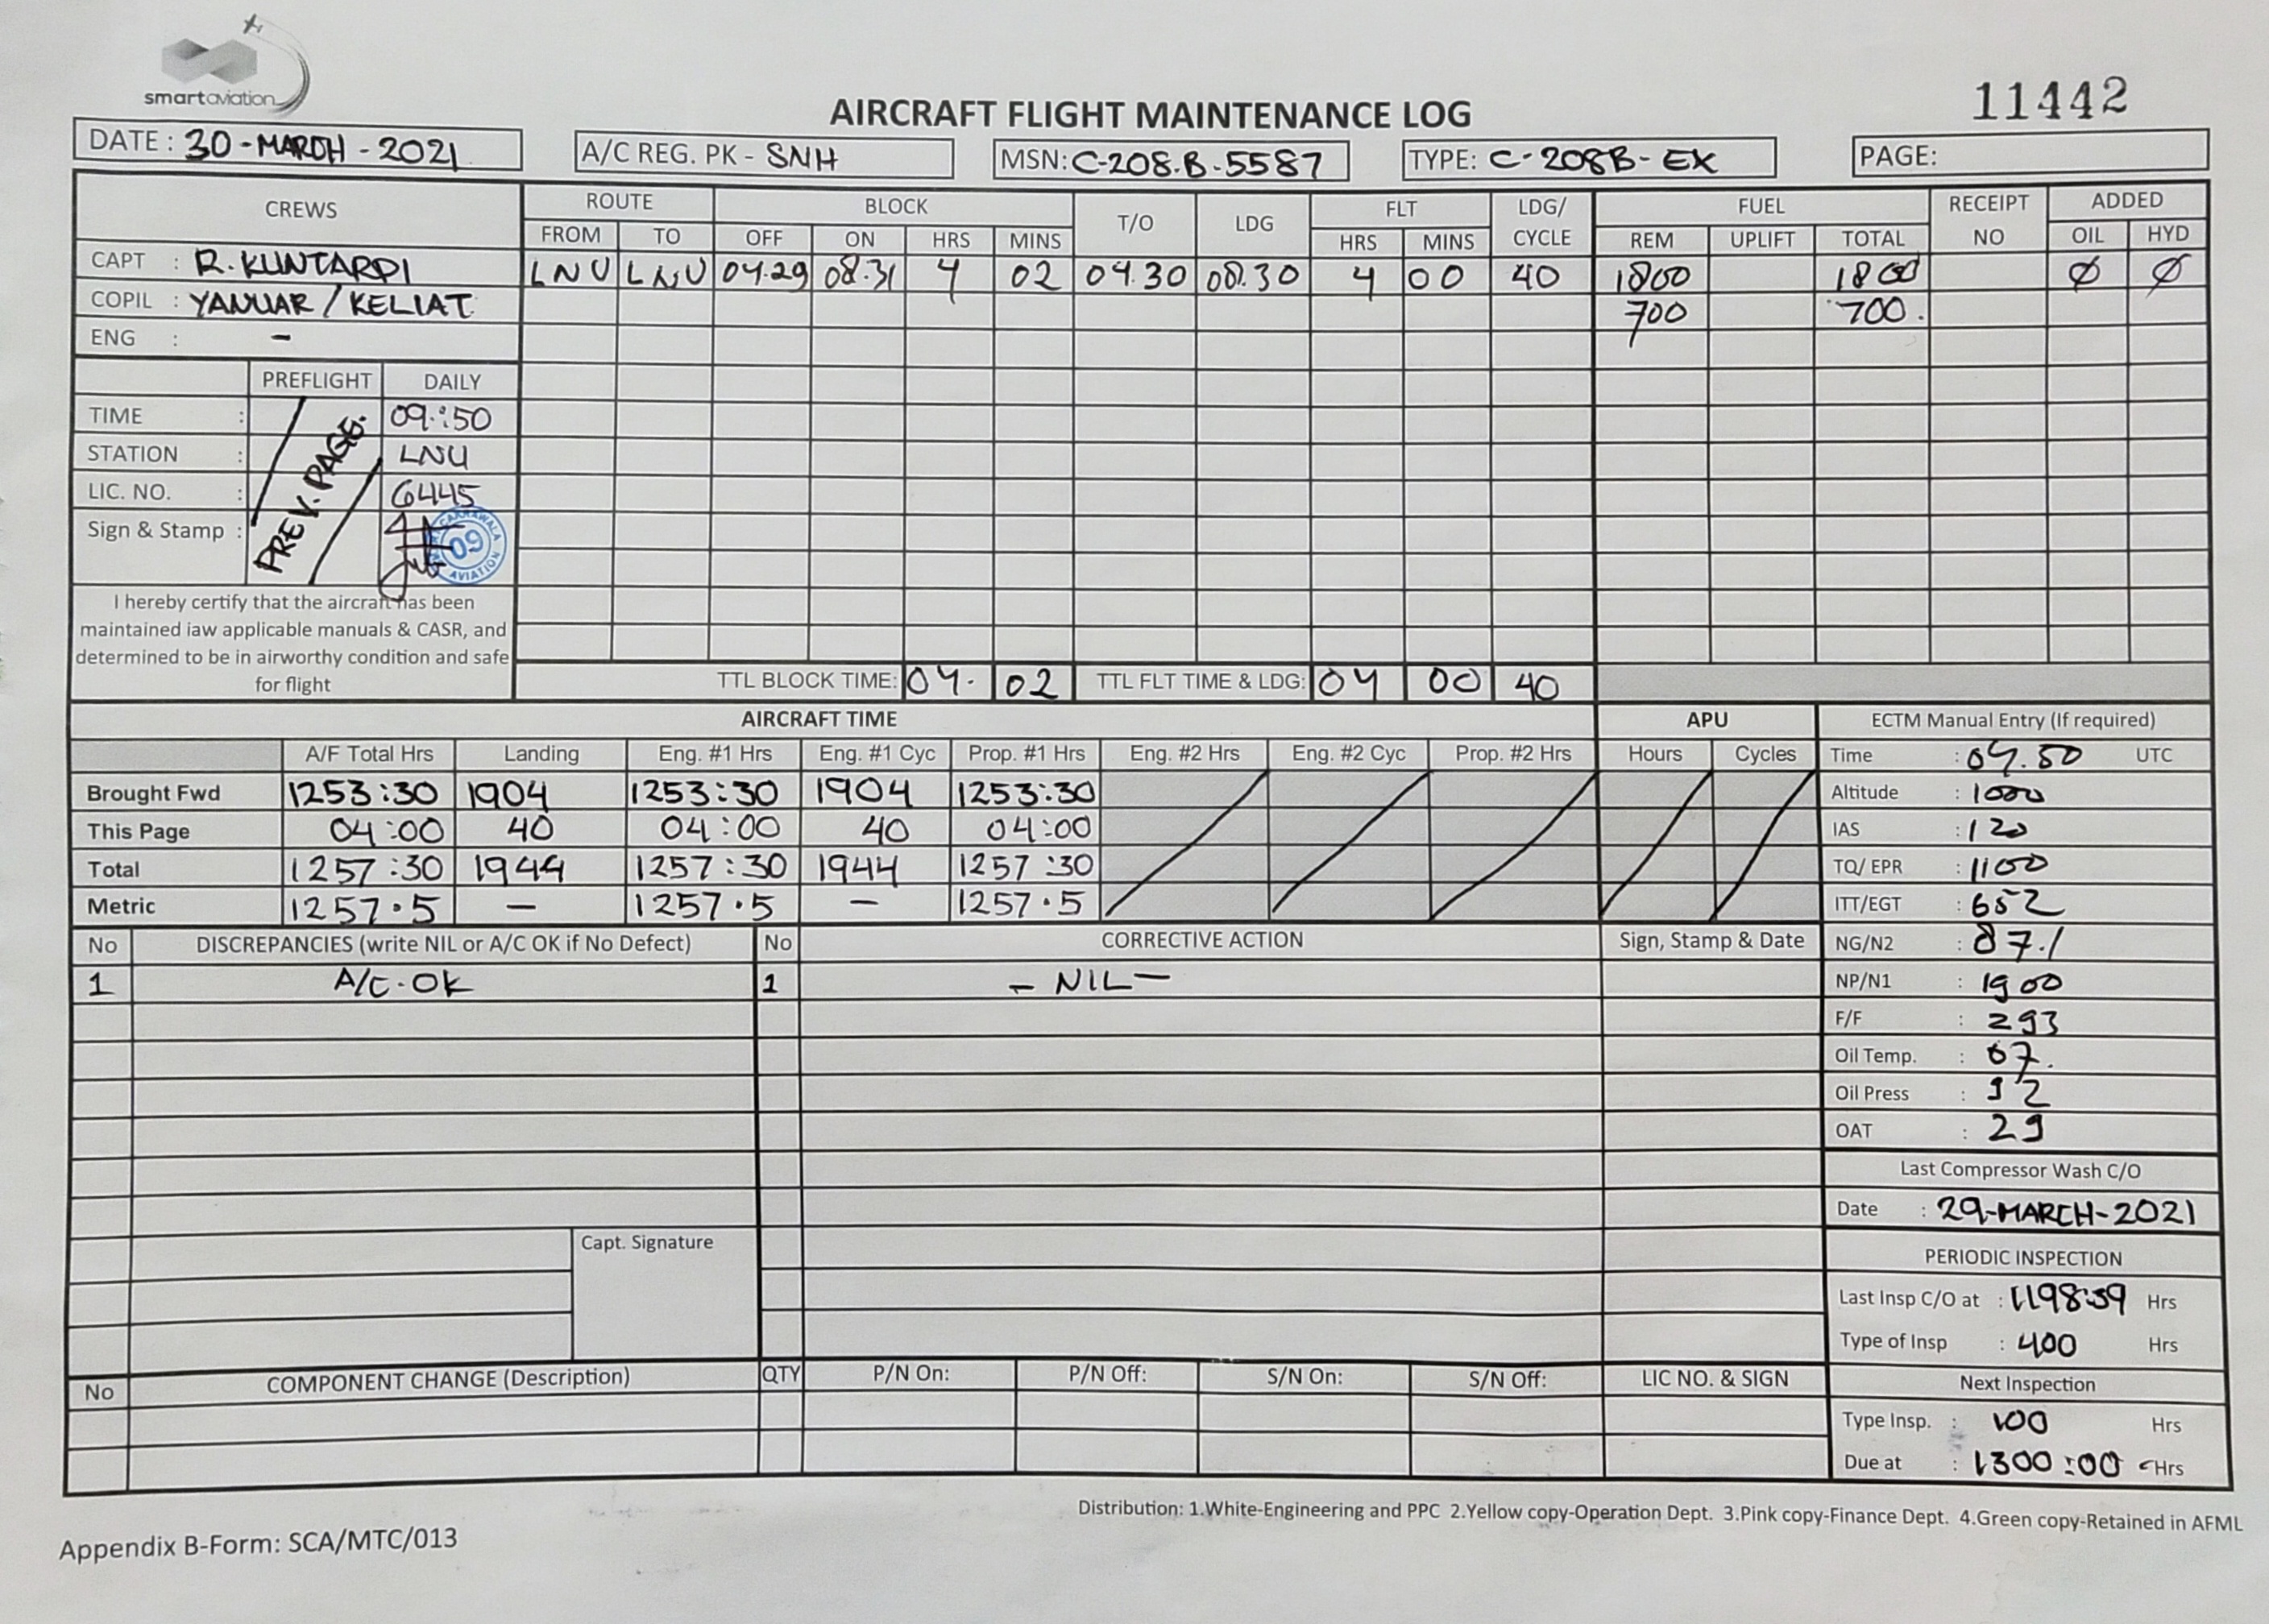 smartaviation
11442
AIRCRAFT FLIGHT MAINTENANCE LOG
DATE : 30-MARCH-2021 A/C REG. PK - SNH MSN: C-208.B-5587 TYPE: C-208B-EX PAGE:
CREWS ROUTE BLOCK T/O LDG FLT LDG/ CYCLE FUEL RECEIPT NO ADDED
FROM TO OFF ON HRS MINS HRS MINS REM UPLIFT TOTAL OIL HYD
CAPT : R. KUNTARDI LNU LNU 04.29 08.31 4 02 04.30 08.30 4 00 40 1800 1800 Ø Ø
COPIL : YANUAR / KELIAT 700 700.
ENG : -
PREFLIGHT DAILY
TIME : 09:50
STATION : LNU
LIC. NO. : 6445
Sign & Stamp :
PREV. PAGE.
09
AVIATION
I hereby certify that the aircraft has been
maintained iaw applicable manuals & CASR, and
determined to be in airworthy condition and safe
for flight
TTL BLOCK TIME: 04. 02 TTL FLT TIME & LDG: 04 00 40
AIRCRAFT TIME APU ECTM Manual Entry (If required)
A/F Total Hrs Landing Eng. #1 Hrs Eng. #1 Cyc Prop. #1 Hrs Eng. #2 Hrs Eng. #2 Cyc Prop. #2 Hrs Hours Cycles
Brought Fwd 1253:30 1904 1253:30 1904 1253:30
This Page 04:00 40 04:00 40 04:00
Total 1257:30 1944 1257:30 1944 1257:30
Metric 1257.5 - 1257.5 - 1257.5
Time : 04.50 UTC
Altitude : 1000
IAS : 120
TQ/ EPR : 1100
ITT/EGT : 652
NG/N2 : 87.1
NP/N1 : 1900
F/F : 293
Oil Temp. : 67.
Oil Press : 92
OAT : 29
No DISCREPANCIES (write NIL or A/C OK if No Defect) No CORRECTIVE ACTION Sign, Stamp & Date
1 A/C-OK 1 - NIL -
Capt. Signature
Last Compressor Wash C/O
Date : 29-MARCH-2021
PERIODIC INSPECTION
Last Insp C/O at : 1198:39 Hrs
Type of Insp : 400 Hrs
Next Inspection
Type Insp. : 100 Hrs
Due at : 1300:00 Hrs
No COMPONENT CHANGE (Description) QTY P/N On: P/N Off: S/N On: S/N Off: LIC NO. & SIGN
Distribution: 1.White-Engineering and PPC 2.Yellow copy-Operation Dept. 3.Pink copy-Finance Dept. 4.Green copy-Retained in AFML
Appendix B-Form: SCA/MTC/013